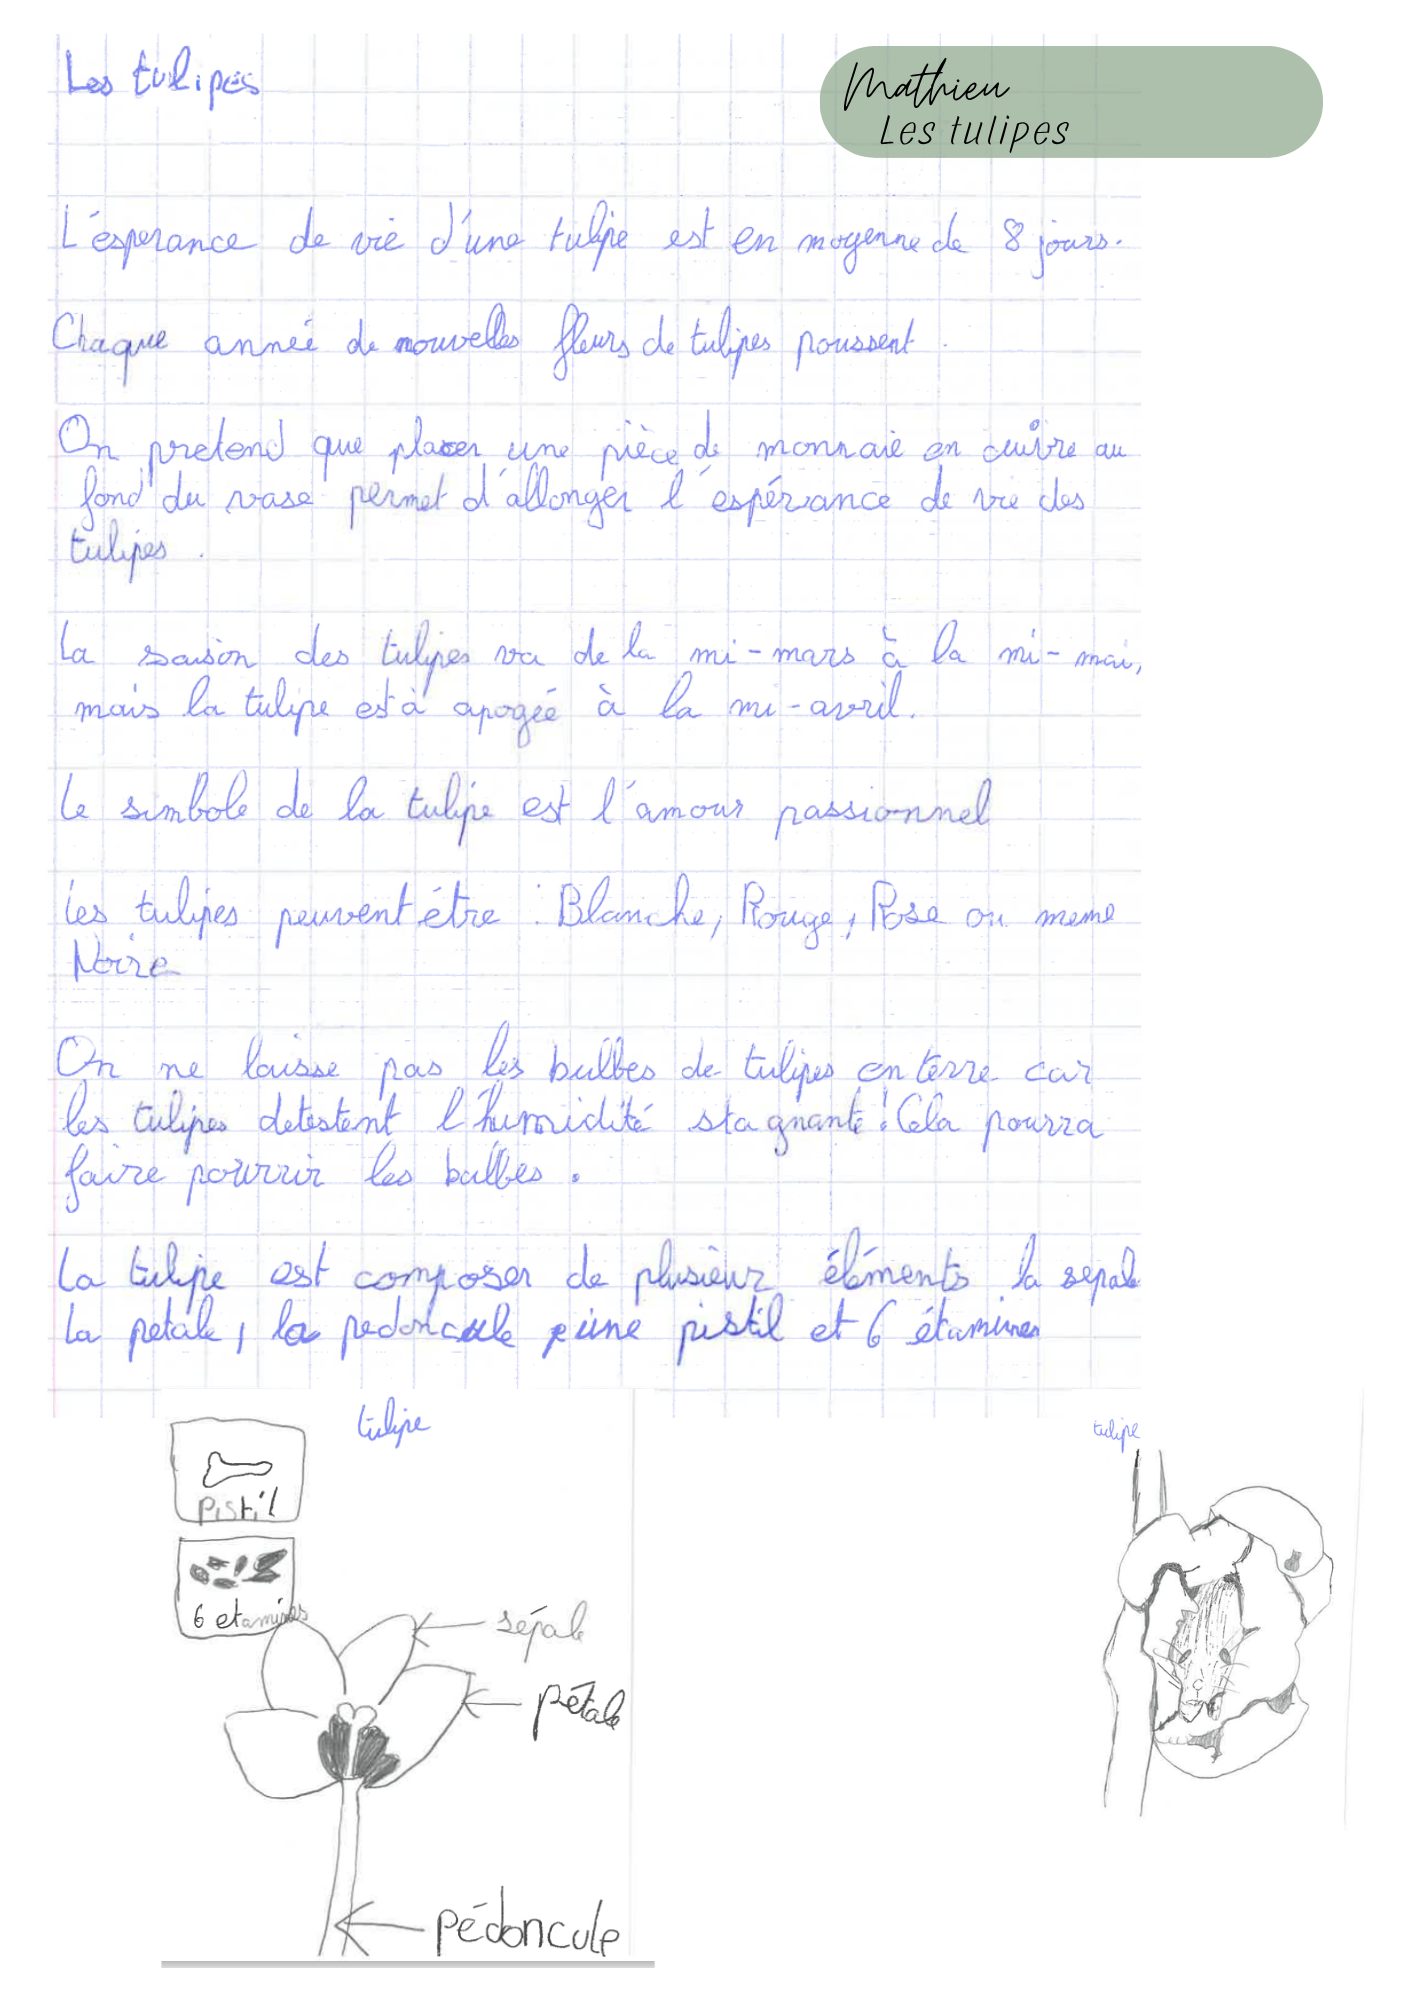 Les tulipes
Mathieu
Les tulipes
L'ésperance de vie d'une tulipe est en moyenne de 8 jours.
Chaque année de nouvelles fleurs de tulipes poussent.
On pretend que placer une pièce de monnaie en cuivre au
fond du vase permet d'allonger l'espérance de vie des
tulipes.
La saison des tulipes va de la mi-mars à la mi-mai,
mais la tulipe est à apogée à la mi-avril.
Le simbole de la tulipe est l'amour passionnel
Les tulipes peuvent être : Blanche, Rouge, Rose ou meme
Noire
On ne laisse pas les bulbes de tulipes en terre car
les tulipes detestent l'humidité stagnante! Cela pourra
faire pourrir les bulbes.
La tulipe est composer de plusieur éléments la sepale
La petale, la pedoncule, une pistil et 6 étamines
tulipe
pistil
6 etamines
sépale
pétale
pédoncule
tulipe